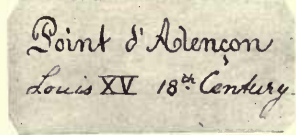 Point d'Alençon
Louis XV 18th Century